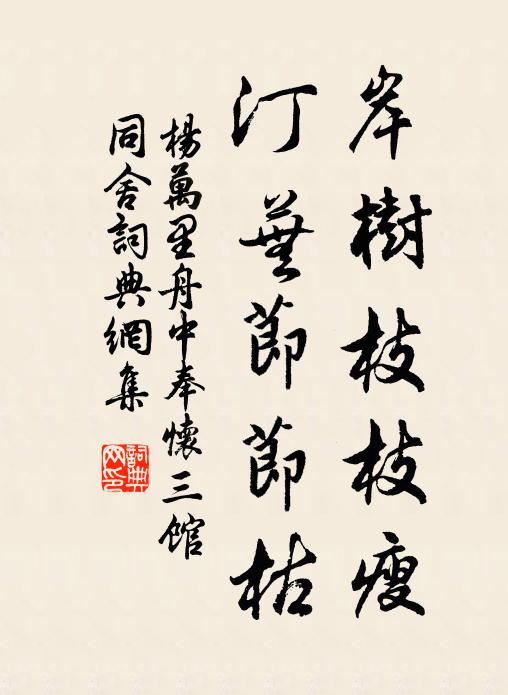 岸樹枝枝瘦
汀蕪節節枯
楊萬里舟中奉懷三館
同舍詞典網集
詞典网印